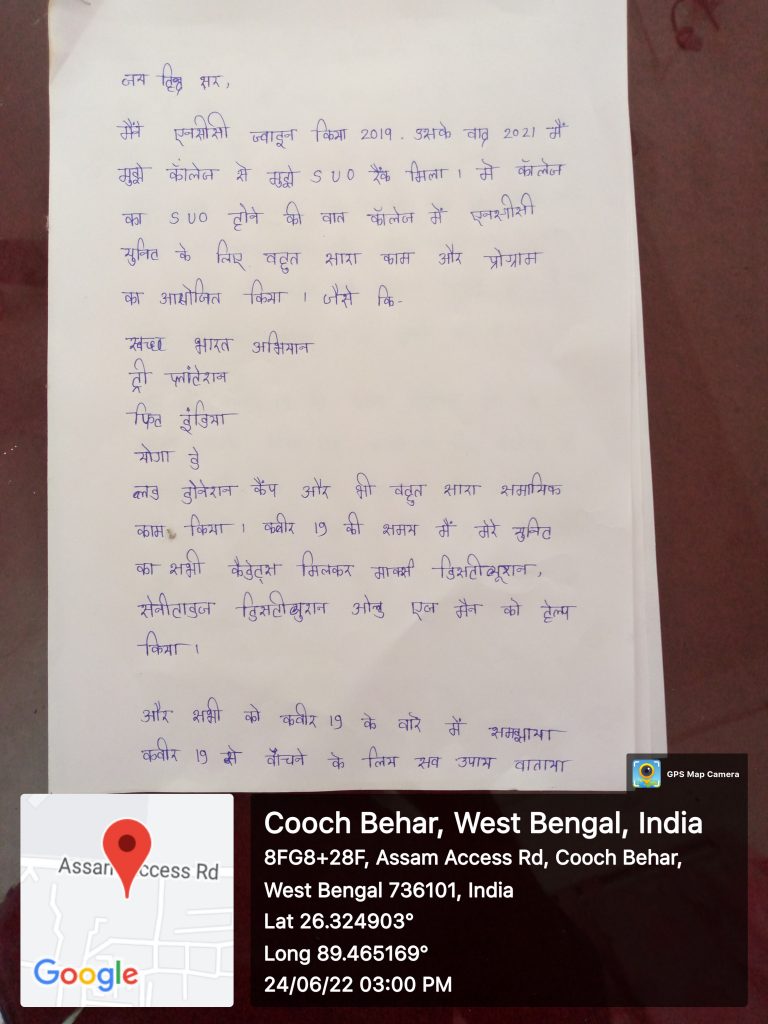 जय हिन्द सर,
मैंने एनसीसी ज्वाइन किया 2019. उसके वाद 2021 मैं
मुझे कॉलेज से मुझे SUO रैंक मिला । मे कॉलेज
का SUO होने की वात कॉलेज में एनसीसी
युनिट के लिए वहुत सारा काम और प्रोग्राम
का आयोजित किया । जैसे कि-
स्वच्छ भारत अभियान
ट्री प्लांटेशन
फिट इंडिया
योगा डे
ब्लड डोनेशन कैंप और भी वहुत सारा समाजिक
काम किया । कवीर 19 की समय मैं मेरे युनिट
का सभी कैडेट्स मिलकर मार्क्स डिसटीब्यूशन,
सेनीटाइज डिसटीब्युशन ओल्ड एज मैन को हेल्प
किया ।
और सभी को कवीर 19 के वारे में समझाया
कवीर 19 से वाँचने के लिय सव उपाय वाताया
GPS Map Camera
Cooch Behar, West Bengal, India
8FG8+28F, Assam Access Rd, Cooch Behar,
West Bengal 736101, India
Lat 26.324903°
Long 89.465169°
24/06/22 03:00 PM
Assam Access Rd
Google